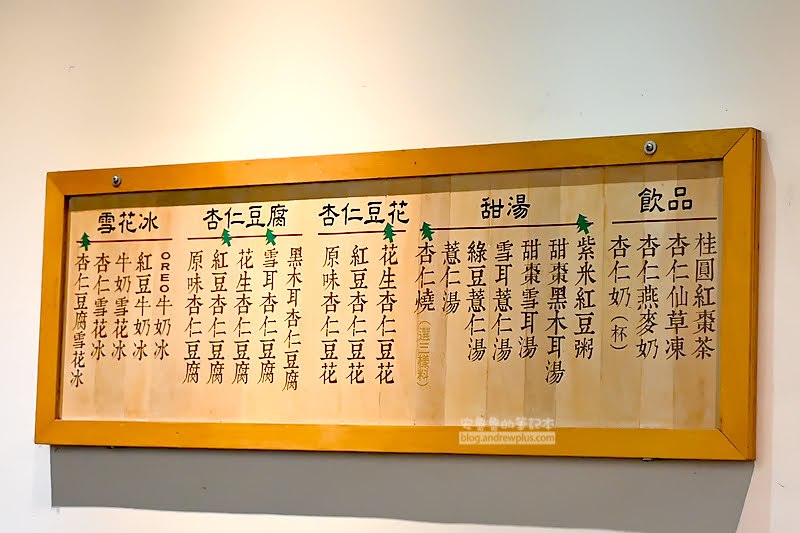 飲品
桂圓紅棗茶
杏仁仙草凍
杏仁燕麥奶
杏仁奶(杯)
甜湯
紫米紅豆粥
甜棗黑木耳湯
甜棗雪耳湯
雪耳薏仁湯
綠豆薏仁湯
薏仁湯
杏仁燒(選三樣料)
杏仁豆花
花生杏仁豆花
紅豆杏仁豆花
原味杏仁豆花
杏仁豆腐
黑木耳杏仁豆腐
雪耳杏仁豆腐
花生杏仁豆腐
紅豆杏仁豆腐
原味杏仁豆腐
雪花冰
OREO牛奶冰
紅豆牛奶冰
牛奶雪花冰
杏仁雪花冰
杏仁豆腐雪花冰
安魯魯的筆記本
blog.andrewplus.com